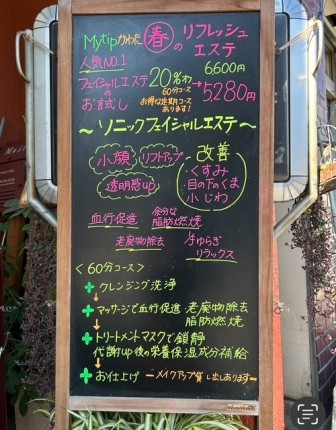 Mytipかわた 春の リフレッシュ
エステ
人気NO.1
フェイシャルエステ
の
お試し
20%わ
60分コース
お得な定期コース
あります!
6,600円
→5,280円
～ソニックフェイシャルエステ～
小顔 リフトアップ
透明感up
改善
くすみ
目の下のくま
小じわ
血行促進 余分な
脂肪燃焼
老廃物除去 ゆらぎ
リラックス
<60分コース>
+ クレンジング洗浄
↓
+ マッサージで血行促進 老廃物除去
脂肪燃焼
↓
+ トリートメントマスクで鎮静
代謝up後の栄養保湿成分補給
↓
+ お仕上げ ーメイクアップ貸し出しありますー